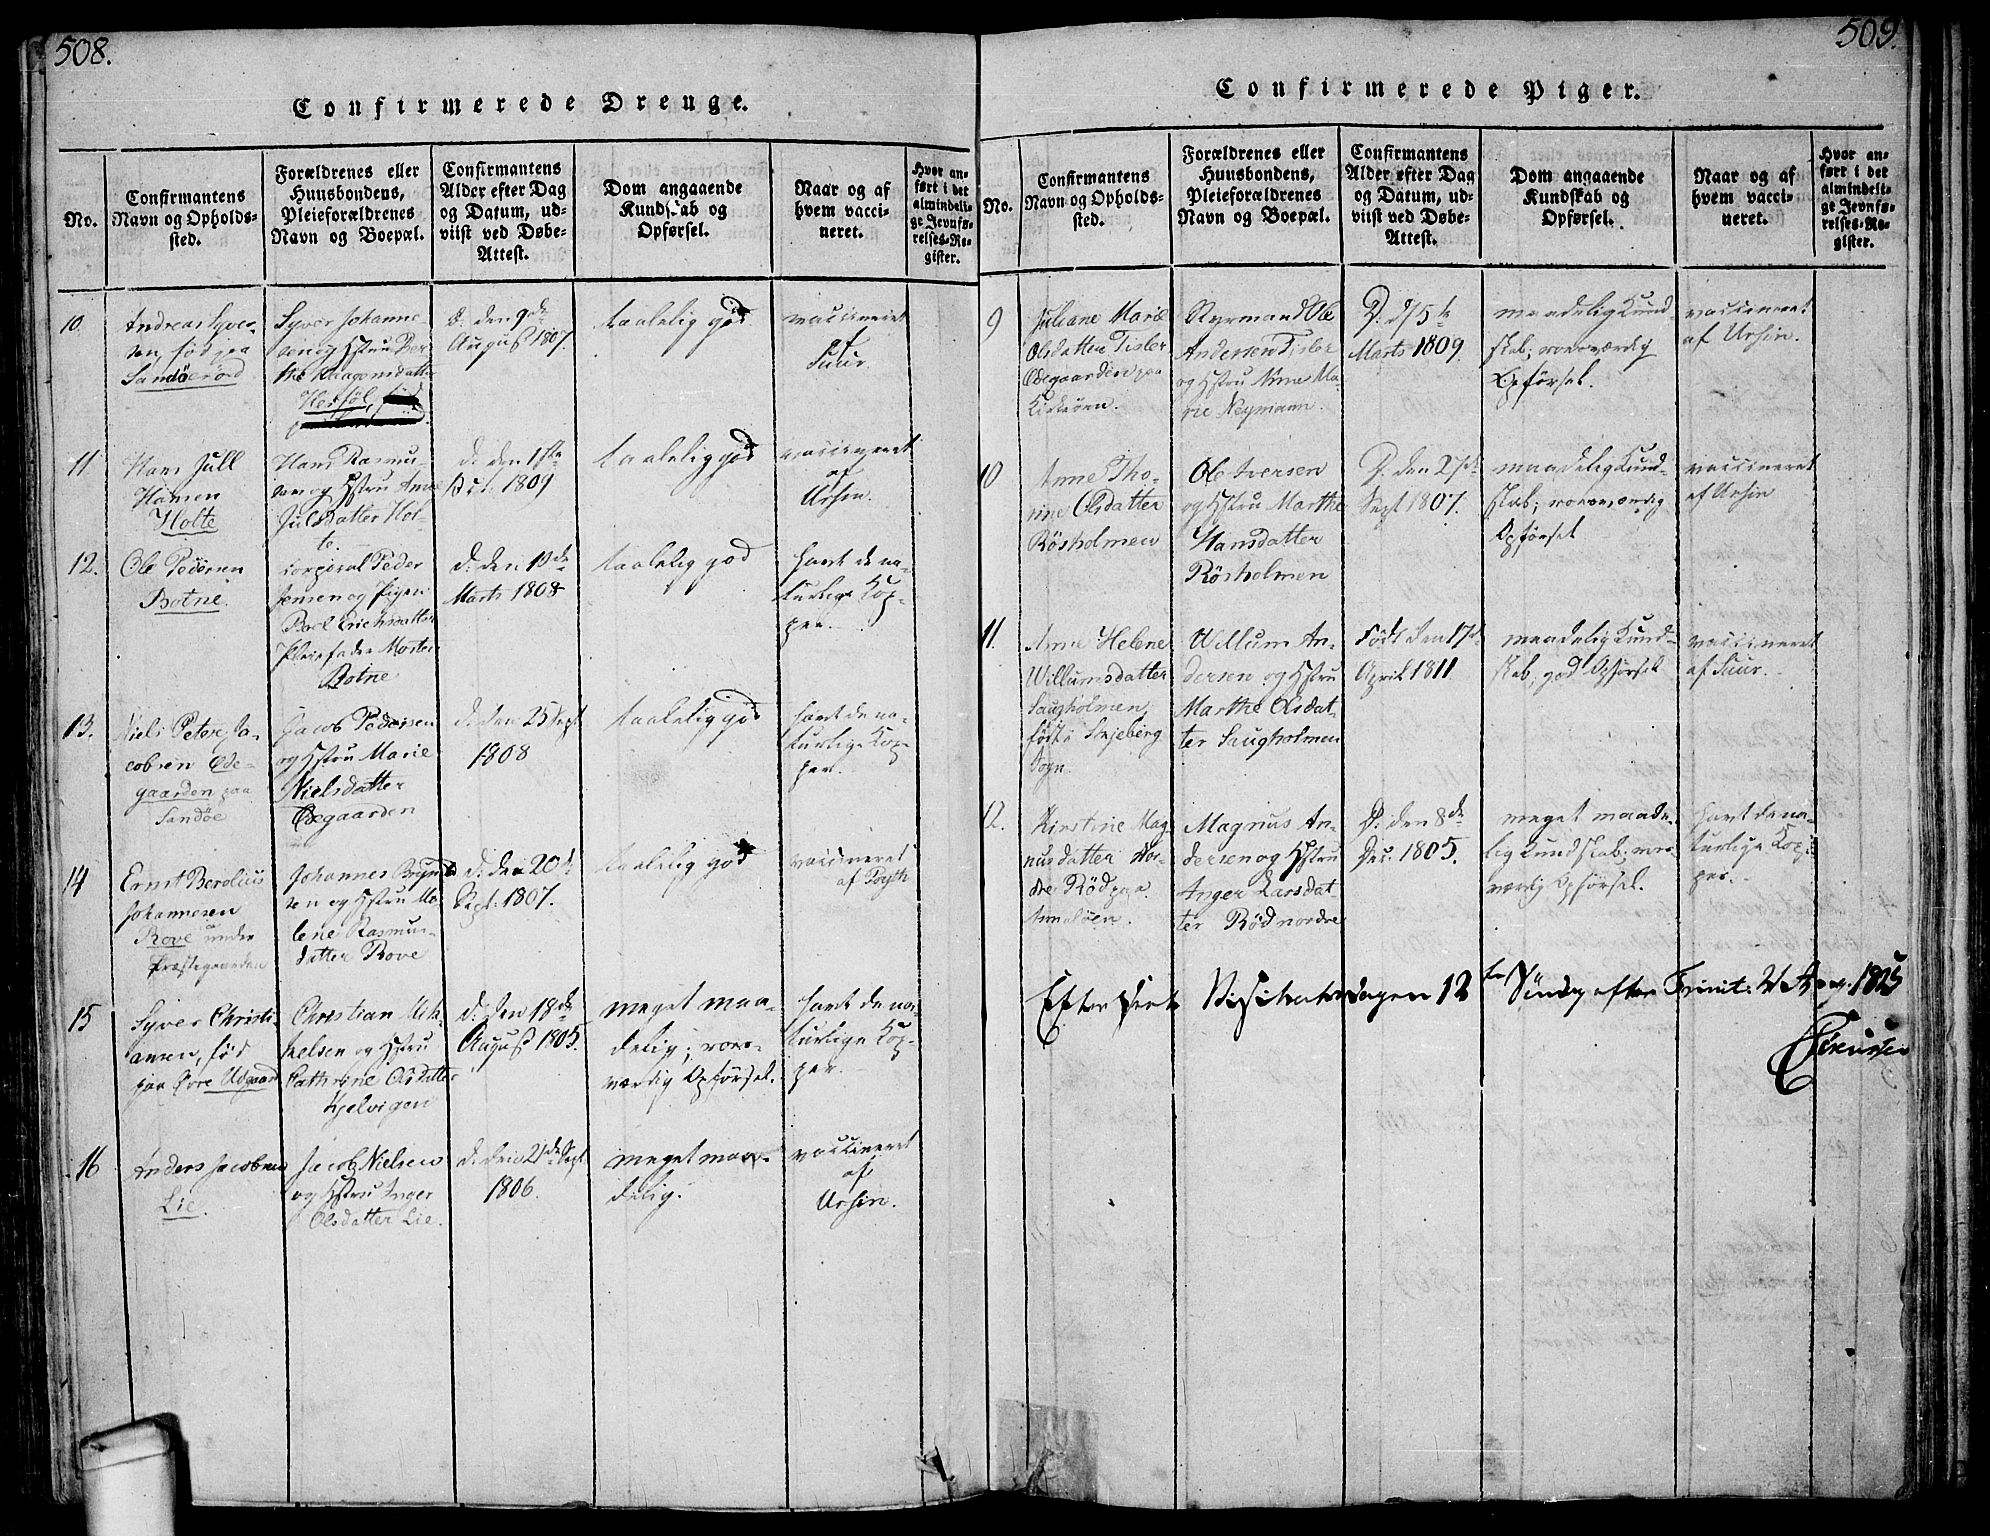 508.
Confirmerede Drenge.
No.
Confirmantens
Navn og Opholds-
sted.
Forældrenes eller
Huusbondens,
Pleieforældrenes
Navn og Boepæl.
Confirmantens
Alder efter Dag
og Datum, ud-
viist ved Døbe-
Attest.
Dom angaaende
Kundskab og
Opførsel.
Naar og af
hvem vacci-
neret.
Hvor an-
ført i det
almindeli-
ge Jevnfø-
relses-Re-
gister.
10.
Andreas Syver-
sen, fød paa
Sandöerød
Syver Johanne-
sen og Hstru Ber-
the Aagensdatter
Herføl,
D. den 9de
August 1807.
taalelig god
vaccineret
af
Suur
11
Hans Jull
Hansen
Holte
Hans Rasmu-
sen og Hstru Anne
Julsdatter Hol-
te.
D. den 1ste
Oct. 1809
taalelig god
vaccineret
af
Ursin.
12.
Ole Pedersen
Botne.
corporal Peder
Jensen og Pigen
Boel Erichsdatter
Pleiefader Morten
Botne
D. den 10de
Marts 1808
taalelig god
havt de na-
turlige Kop-
per.
13.
Niels Peter Ja-
cobsen Øde-
gaarden paa
Sandøe
Jacob Pedersen
og Hstru Marie
Nielsdatter
Ødegaarden
D. den 25 Sept
1808
taalelig god
havt de na-
turlige Kop-
per.
14
Ernst Berolius
Johannesen
Rove under
Præstegaarden
Johannes Brynild-
sen og Hstru Ma-
lene Rasmus-
datter Rove
D. den 20de
Sept. 1807.
taalelig god
vaccineret
af Foyth
15
Syver Christi-
ansen, fød
paa Øvre Udgaard
Christian Mik-
kelsen og Hstru
Cathrine Olsdatter
Kjelvigen
D. den 18de
August 1805.
meget maa-
delig; roes-
værdig Opførsel.
havt de na-
turlige Kop-
per.
16
Anders Jacobsen
Lie.
Jacob Nielsen
og Hstru Inger
Olsdatter Lie.
D. den 21de Sept.
1806.
meget maa-
delig.
vaccineret
af
Ursin.
509.
Confirmerede Piger.
No.
Confirmantens
Navn og Opholds-
sted.
Forældrenes eller
Huusbondens,
Pleieforældrenes
Navn og Boepæl.
Confirmantens
Alder efter Dag
og Datum, ud-
viist ved Døbe-
Attest.
Dom angaaende
Kundskab og
Opførsel.
Naar og af
hvem vacci-
neret.
Hvor an-
ført i det
almindeli-
ge Jevnfø-
relses-Re-
gister.
9
Juliane Marie
Olsdatter Tisler
Ødegaarden paa
Kirkeøen.
Styrmand Ole
Andersen Tisler
og Hstru Anne Ma-
rie Neymann.
D. d 5te
Marts 1809.
maadelig Kund-
skab; roesværdig
Opførsel.
vaccineret
af Ursin.
10
Anne Tho-
rine Olsdatter
Rösholmen
Ole Iversen
og Hstru Marthe
Hansdatter
Rösholmen
D. den 27de
Sept 1807.
maadelig Kund-
skab; roesværdig
Opførsel
vaccineret
af Ursin
11.
Anne Helene
Willumsdatter
Saugholmen,
født i Skjeberg
Sogn
Willum An-
dersen og Hstru
Marthe Olsdat-
ter Saugholmen
Født den 17de
April 1811
maadelig Kund-
skab, god Opførsel
vaccineret
af Suur.
12.
Kirstine Mag-
nusdatter Nor-
dre Rød paa
Asmaløen.
Magnus An-
dersen og Hstru
Anger Larsdat-
ter Rød nordre
D. den 8de
Dec. 1805.
meget maade-
lig Kundskab; roes-
værdig Opførsel.
havt de na-
turlige Kop-
per.
Efterseet Visitatsdagen 12te Søndag efter Trinit: 21 Aug. 1825
Sørenssen